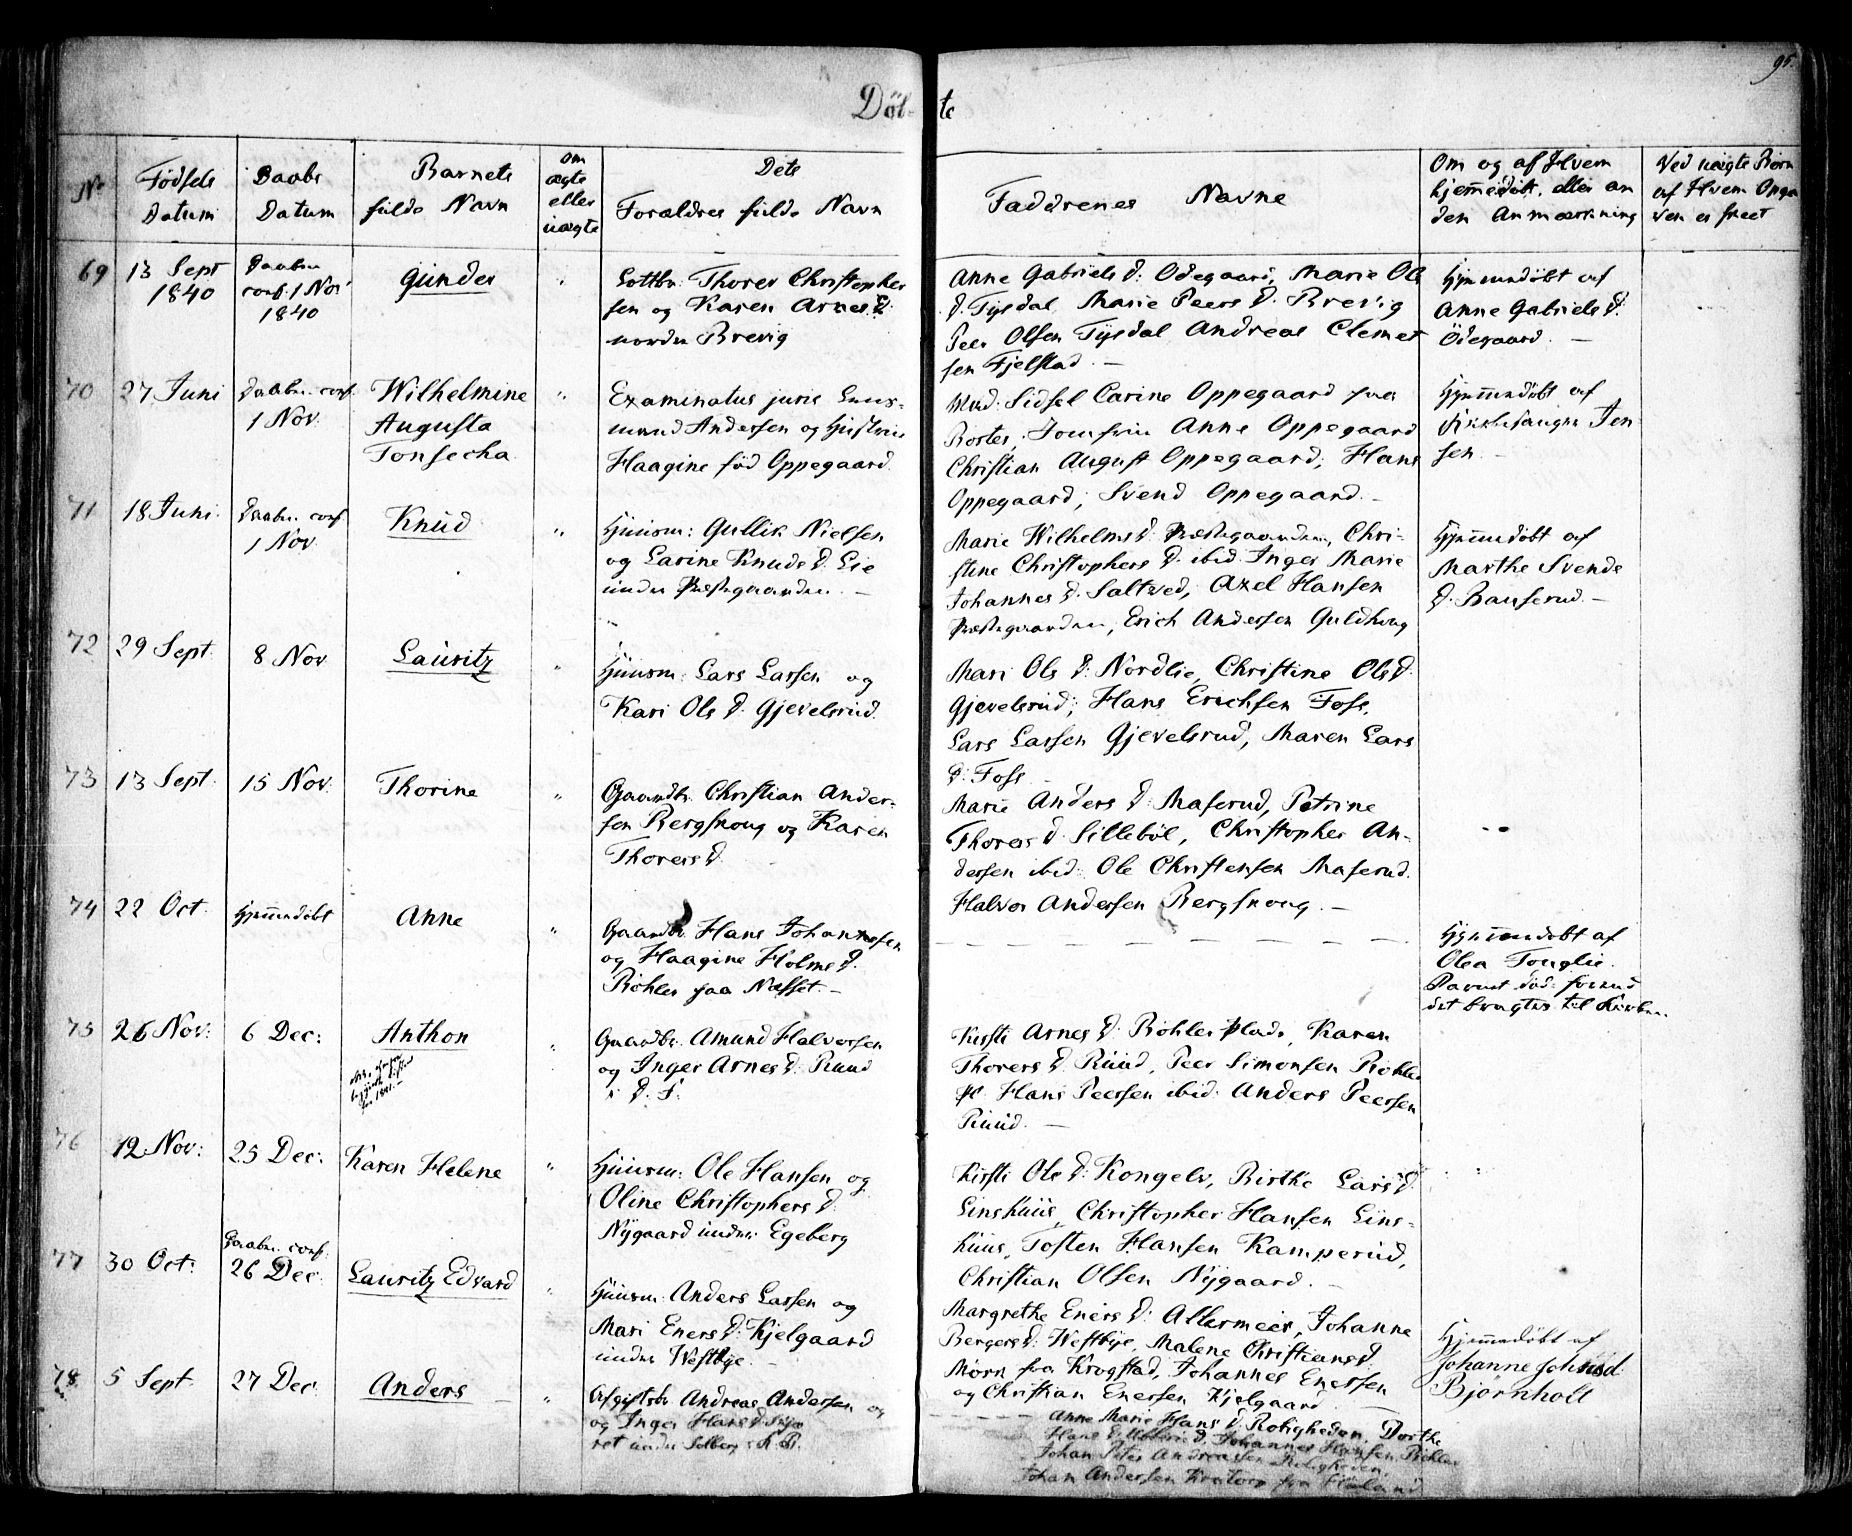 95.
Döbte
No
Födsels
Datum
Daabs
Datum
Barnets
fulde Navn
om
ægte
eller
uægte
Dets
Forældres fulde Navn
Faddrenes Navne
Om og af Hvem
hjemmedöbt, eller an
den Anmærkning
Ved uægte Börn
af Hvem Opga
ven er skeet
69
13 Sept
1840
Daaben
conf. 1 Nov
1840
Gunder
"
Thorer Christopher
sen og Karen Arnes D.
norden Brevig
Anne Gabriels D. Ödegaard, Marie Ols
D. Tysdal, Marie Peers D. Brevig
Peer Olsen Tysdal Andreas Clemet
sen Fjelstad. —
Hjemmedöbt af
Anne Gabriels D.
Ödegaard. —
70
27 Juni
Daaben conf.
1 Nov.
Wilhelmine
Augusta
Tonsecha
"
Examinatus juris Lens-
mand Andersen og Hustrue
Haagine föd Oppegaard
Mad. Sidsel Carine Oppegaard paa
Jomfrue Anne Oppegaard
Christian August Oppegaard, Hans
Oppegaard, Svend Oppegaard. —
Hjemmedöbt af
Jen
sen. —
71
18 Juni
Daaben conf.
1 Nov.
Knud
"
Huusm: Gullik Nielsen
og Larine Knuds D. Lie
under Præstegaarden. —
Marie Wilhelms D. Præstegaarden, Chri-
stine Christophers D. ibid. Inger Marie
Johannes D. Saltved, Axel Hansen
Præstegaarden, Erich Andersen Guldhoug
Hjemmedöbt af
Marthe Svends
D. Bauserud. —
72
29 Sept
8 Nov
Lauritz
"
Huusm: Lars Larsen og
Kari Ols D. Gjevelsrud.
Mari Ols D: Nordlie, Christine Ols D.
Gjevelsrud; Hans Erichsen Foss,
Lars Larsen Gjevelsrud, Maren Lars
D: Foss —
73
13 Sept.
15 Nov.
Thorine
"
Gaardbr. Christian Ander-
sen Bergskoug og Karen
Thorers D.
Marie Anders D. Maserud, Petrine
Thorers D. Sillebøl, Christopher An-
dersen ibid: Ole Christensen Maserud.
Halvor Andersen Bergskoug. —
74
22 Oct.
Hjemmedöbt
Anne
"
Gaardbr. Hans Johannesen
og Haagine Holms D.
Röhler paa Næsset. —
Hjemmedöbt af
Olea Tonglie.
Barnet död forend
det bragtes til Kirken.
75
26 Nov:
6 Dec:
Anthon
"
Gaardbr. Amund Halvorsen
og Inger Arnes D: Ruud
i D. S.
Kirsti Arnes D. Röhler Plads, Karen
Thorers D. Ruud, Peer Simonsen Röhler
Pl. Hans Peersen ibid: Anders Peersen
Ruud. —
76
12 Nov:
25 Dec:
Karen Helene
"
Huusm: Ole Hansen og
Oline Christophers D.
Nygaard under Egeberg
Kirsti Ols D: Kongelv, Birthe Lars D.
Linshuus, Christopher Hansen Lins-
huus, Tosten Hansen Kamperud,
Christian Olsen Nygaard. —
77
30 Oct:
Daaben conf.
26 Dec:
Lauritz Edvard
"
Huusm: Anders Larsen og
Mari Eners D: Kjelgaard
under Westbye. —
Margrethe Eners D: Allermeer, Johanne
Bergers D: Westbye, Malene Christians D.
Mörn fra Krogstad, Johannes Enersen
og Christian Enersen Kjelgaard —
Hjemmedöbt af
Johanne Johns D.
Björnholt
78
5 Sept.
27 Dec
Anders —
"
Afgiftsbr. Andreas Andersen og
og Inger Hans D.
ret under Solberg
Anne Marie Hans D. Roligheden, Dorthe
Hans D. Johannes Hansen Röhler
Johan Peter Andreassen Roligheden,
Johan Andersen